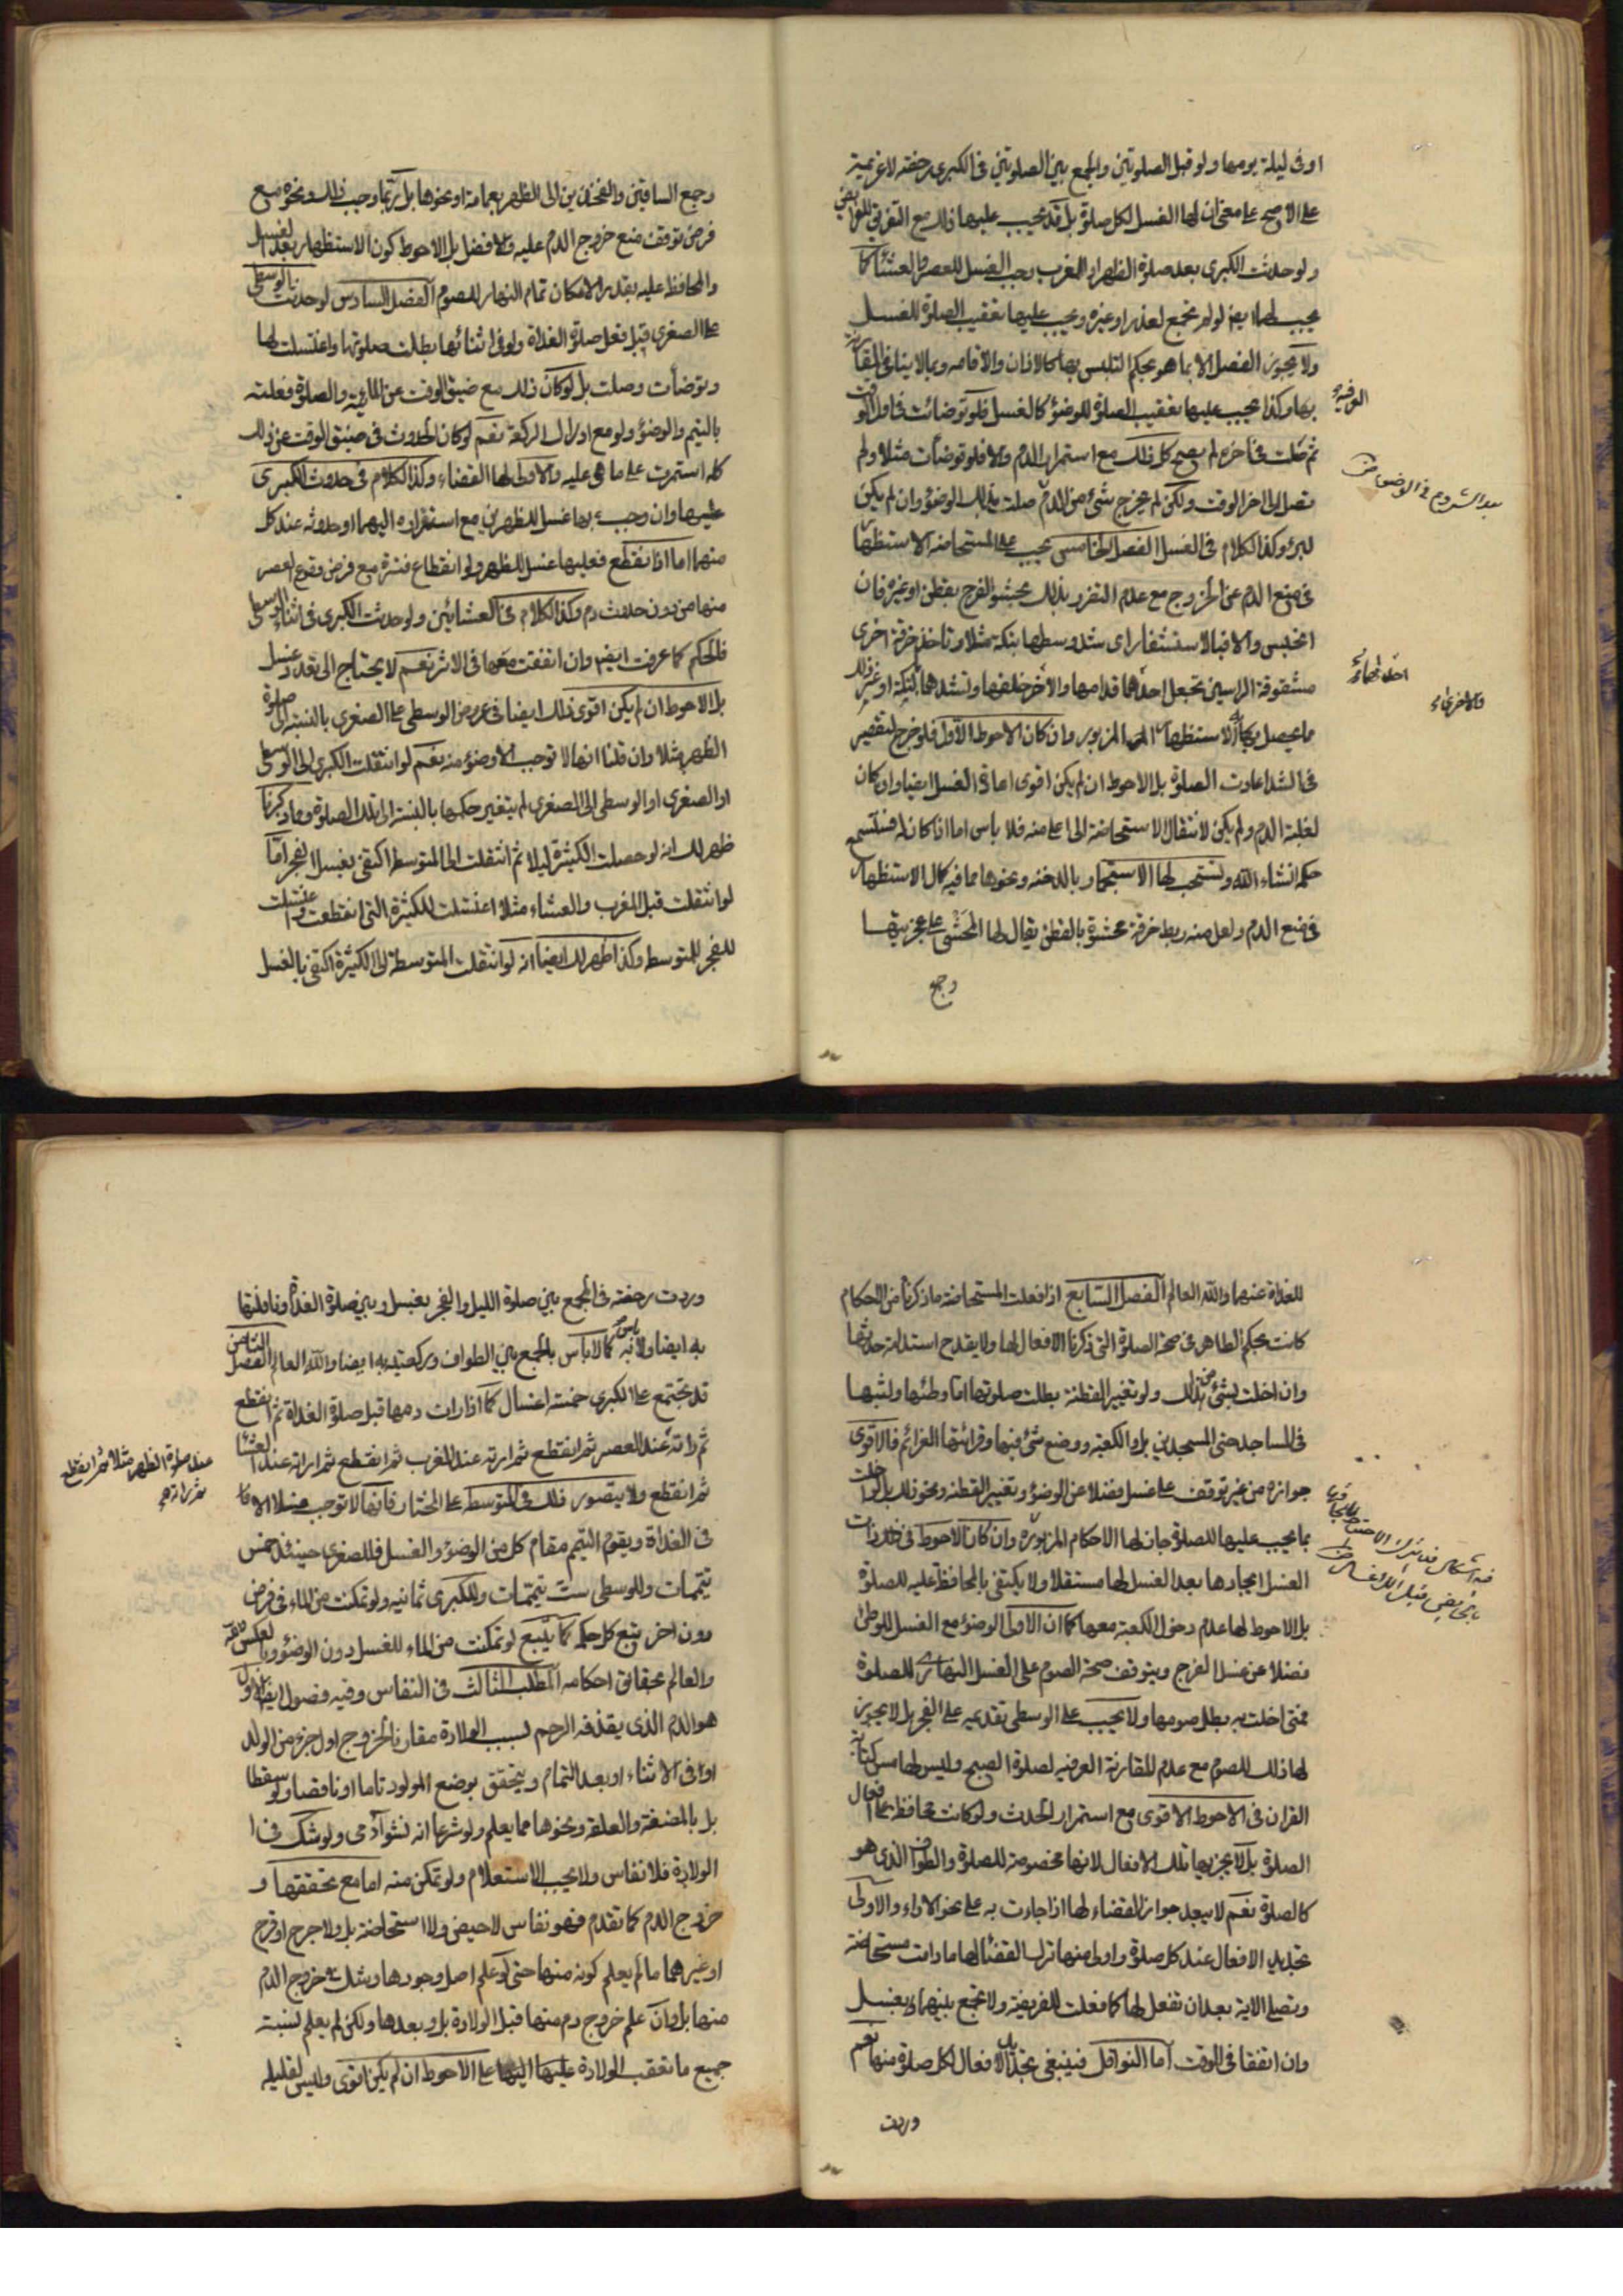 او فى ليلة يومها ولو قبل الصلوتين والجمع بين الصلوتين فى الكبرى رخصة لا عزيمة
على الاصح على معنى ان لها الغسل لكل صلوة بل قد يجب عليها ذلك مع التفريق للفرايض
ولو حدثت الكبرى بعد صلوة الظهر او المغرب يجب الغسل للعصر والعشاء كما
يجب لها ايضا لو لم تجمع لعذر او غيره ويجب عليها تعقيب الصلوة للغسل
ولا يجوز الفصل الا بما هو بحكم التلبس بها كالاذان والاقامه وبما لا ينافى المقارنة
العرفية
بها وكذا يجب عليها تعقيب الصلوة للوضوء كالغسل فلو توضات فى اول الوقت
ثم صلت فى اخره لم يصح كل ذلك مع استمرار الدم والا فلو توضات مثلا ولم
بعد الشروع فى الوضوء
تصل الى اخر الوقت ولكن لم يخرج شئ من الدم صلت بذلك الوضوء وان لم يكن
لبرء وكذا الكلام فى الغسل الفصل الخامس يجب على المستحاضه الاستظهار
فى منع الدم عن الخروج مع عدم التضرر بذلك بحشو الفرج بقطن او غيره فان
انحبس والا فبالاستثفار اى شد وسطها بتكة مثلا وتاخذ خرقة اخرى
مشقوقة الراسين تجعل احدهما قدامها والاخر خلفها وتشدهما بالتكة او غير ذلك
مما يحصل به الاستظهار المزبور وان كان الاحوط الاول فلو خرج لتقصير
فى الشد اعادت الصلوة بل الاحوط ان لم يكن اقوى اعادة الغسل ايضا وان كان
لغلبة الدم ولم يكن لانتقال الاستحاضة الى اعلى منه فلا باس اما اذا كان له فستسمع
حكمه انشاء الله ويستحب لها الاستجمار بالدخنه ونحوها مما فيه كمال الاستظهار
فى منع الدم ولعل منه ربط خرقة محشوة بالقطن يقال لها المحشى على عجيزتها
وجمع
وجمع الساقين والفخذين الى الظهر بعمامة او نحوها بل ربما وجب ذلك ونحوه مع
فرض توقف منع خروج الدم عليه والافضل بل الاحوط كون الاستظهار بعد الغسل
والمحافظه عليه بقدر الامكان تمام النهار للصوم الفصل السادس لو حدثت الوسطى
على الصغرى قبل فعل صلوة الغداة ولو فى اثنائها بطلت صلوتها واغتسلت لها
وتوضات وصلت بل لو كان ذلك مع ضيق الوقت عن المائية والصلوة فعلته
بالتيمم والوضوء ولو مع ادراك الركعة نعم لو كان الحدوث فى ضيق الوقت عن ذلك
كله استمرت على ما هى عليه والاولى لها القضاء وكذا الكلام فى حدوث الكبرى
عليها وان وجب بها غسل للظهرين مع استمراره اليهما او حدوثه عند كل
منهما اما اذا انقطع فعليها غسل للظهر ولو انقطاع فترة مع فرض وقوع العصر
منها من دون حدوث دم وكذا الكلام فى العشائين ولو حدثت الكبرى فى اثناء الوسطى
فالحكم كما عرفت ايضا وان اتفقت معها فى الاثر نعم لا يحتاج الى تعدد غسل
بل الاحوط ان لم يكن اقوى ذلك ايضا فى عروض الوسطى على الصغرى بالنسبة الى صلوة
الظهر مثلا وان قلنا انها لا توجب الا وضوء منه نعم لو انتقلت الكبرى الى الوسطى
او الصغرى او الوسطى الى الصغرى لم يتغير حكمها بالنسبة الى تلك الصلوة ومما ذكرنا
ظهر لك انه لو حصلت الكثيرة ليلا ثم انتقلت الى المتوسط اكتفى بغسل الفجر اما
لو انتقلت قبل المغرب والعشاء مثلا اغتسلت للكثيرة التى انقطعت واغتسلت
للفجر للمتوسطه وكذا ظهر لك ايضا انه لو انتقلت المتوسطة الى الكثيرة اكتفى بالغسل
للغداة عنهما والله العالم الفصل السابع اذا فعلت المستحاضة ما ذكرنا من الاحكام
كانت بحكم الطاهر فى صحة الصلوة التى ذكرنا الافعال لها ولا يقدح استدامة حدثها
وان اخلت بشئ من ذلك ولو تغيير القطنة بطلت صلوتها اما وطئها ولبثها
فى المساجد حتى المسجدين بل والكعبة ووضع شئ فيها وقرائتها العزائم فالاقوى
جوازه من غير توقف على غسل فضلا عن الوضوء وتغيير القطنه ونحو ذلك بل لو اخلت
بما يجب عليها للصلوة جاز لها الاحكام المزبورة وان كان الاحوط فى ذوات
الغسل ايجادها بعد الغسل لها مستقلا ولا يكتفى بالمحافظة عليه للصلوة
بل الاحوط لها عدم دخول الكعبة معها كما ان الاولى الوضوء مع الغسل للوطئ
فضلا عن غسل الفرج ويتوقف صحة الصوم على الغسل النهارى للصلوة
فمتى اخلت به بطل صومها ولا يجب على الوسطى تقديمه على الفجر بل لا يجوز
لها ذلك للصوم مع عدم المقارنة العرفيه لصلوة الصبح وليس لها مس كتابة
القران فى الاحوط الاقوى مع استمرار الحدث ولو كانت محافظة على افعال
الصلوة بل لا يجزيها تلك الافعال لانها مخصوصة للصلوة والطواف الذى هو
كالصلوة نعم لا يبعد جواز القضاء لها اذا جاءت به على نحو الاداء والاولى
تجديد الافعال عند كل صلوة واولى منها ترك القضاء لها ما دامت مستحاضة
وتصلى الاية بعد ان تفعل لها كما فعلت للفريضة ولا تجمع بينهما بغسل
وان اتفقا فى الوقت اما النوافل فينبغى تجديد الافعال لكل صلوة منها نعم
وردت
وردت رخصة فى الجمع بين صلوة الليل والفجر بغسل وبين صلوة الغداة ونافلتها
به ايضا ولا باس به كما لا باس بالجمع بين الطواف وركعتيه به ايضا والله العالم الفصل الثامن
قد تجتمع على الكبرى خمسة اغسال كما اذا رات دمها قبل صلوة الغداة ثم انقطع
عند صلوة الظهر مثلا ثم انقطع
ثم راته
ثم راته عند العصر ثم انقطع ثم راته عند المغرب ثم انقطع ثم راته عند العشاء
ثم انقطع ولا يتصور ذلك فى المتوسطة على المختار فانها لا توجب غسلا الا
فى الغداة ويقوم التيمم مقام كل من الوضوء والغسل فللصغرى حينئذ خمس
تيممات وللوسطى ست تيممات وللكبرى ثمانيه ولو تمكنت من الماء فى فرض
دون اخر يتبع كل حكمه كما يتبع لو تمكنت من الماء للغسل دون الوضوء وبالعكس والله
العالم بحقائق احكامه المطلب الثالث فى النفاس وفيه فصول الفصل الاول
هو الدم الذى يقذفه الرحم بسبب الولادة مقارنا لخروج اول جزء من الولد
او فى الاثناء او بعد التمام ويتحقق بوضع المولود تاما او ناقصا ولو سقطا
بل بالمضغة والعلقة ونحوها مما يعلم ولو شرعا انه نشو آدمى ولو شك فى
الولادة فلا نفاس ولا يجب الاستعلام ولو تمكن منه اما مع تحققها و
خروج الدم كما تقدم فهو نفاس لا حيض ولا استحاضة بل ولا جرح او قرح
او غيرهما ما لم يعلم كونه منها حتى لو علم اصل وجودها وشك فى خروج الدم
منها بل وان علم خروج دم منها قبل الولادة بل وبعدها ولكن لم يعلم نسبة
جميع ما تعقب الولادة اليها على الاحوط ان لم يكن اقوى وليس لقليله